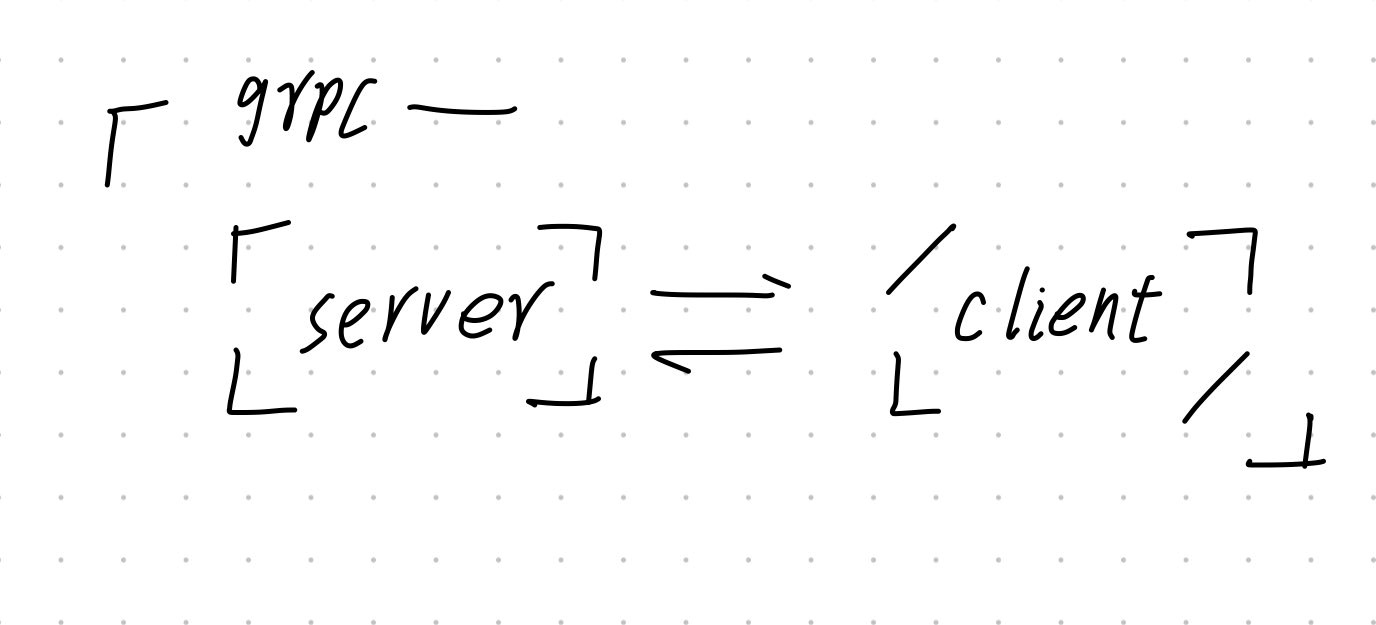 grpc
server
client